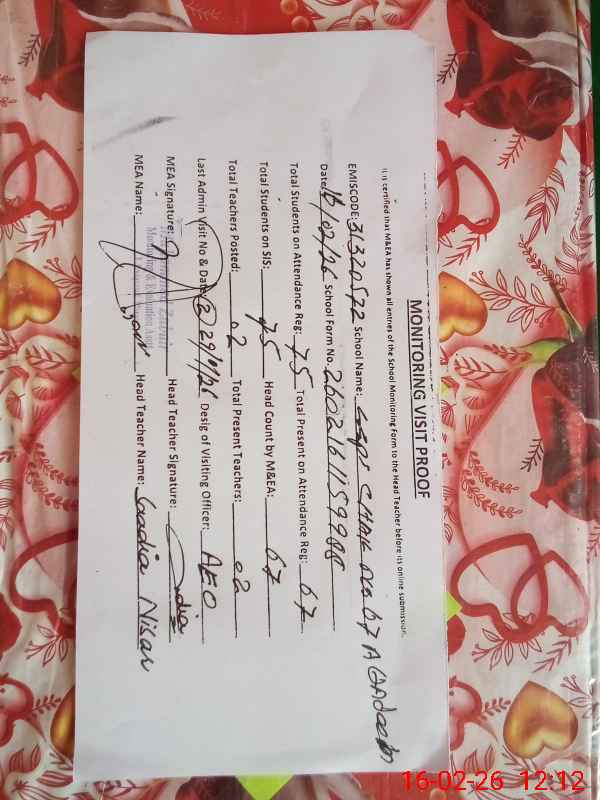 MONITORING VISIT PROOF
It is certified that M&EA has shown all entries of the School Monitoring Form to the Head Teacher before its online submission.
EMISCODE: 31320572 School Name: GGPS CHAK No 67 A
Date: 16/02/26 School Form No: 2602161159988
Total Students on Attendance Reg: 75 Total Present on Attendance Reg: 67
Total Students on SIS: 75 Head Count by M&EA: 67
Total Teachers Posted: 02 Total Present Teachers: 02
Last Admin Visit No & Date: 2 29/1/26 Desig of Visiting Officer: AEO
MEA Signature: Head Teacher Signature: Sadia
Monitoring & Evaluation Asstt
MEA Name: Head Teacher Name: Saadia Nisar
16-02-26 12:12